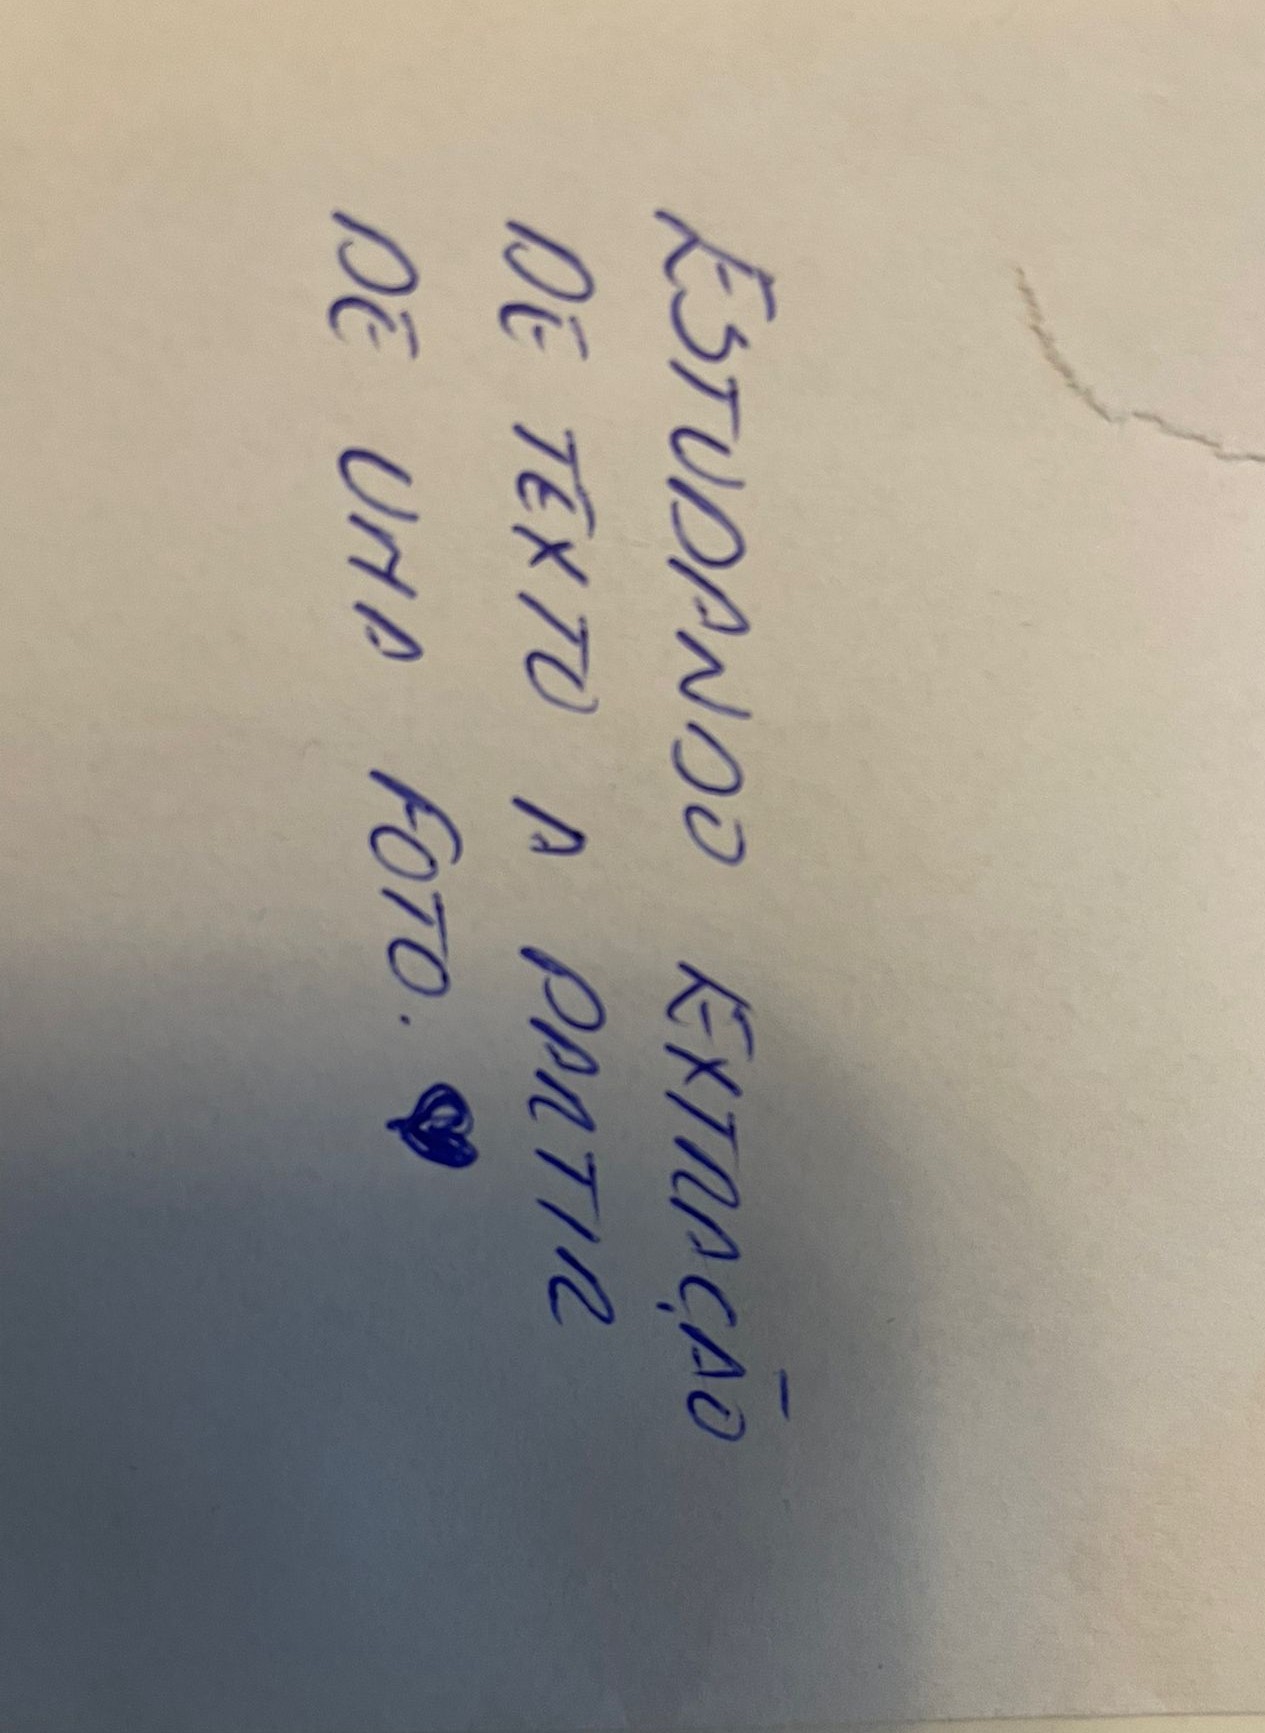 ESTUDANDO EXTRAÇÃO
DE TEXTO A PARTIR
DE UMA FOTO.